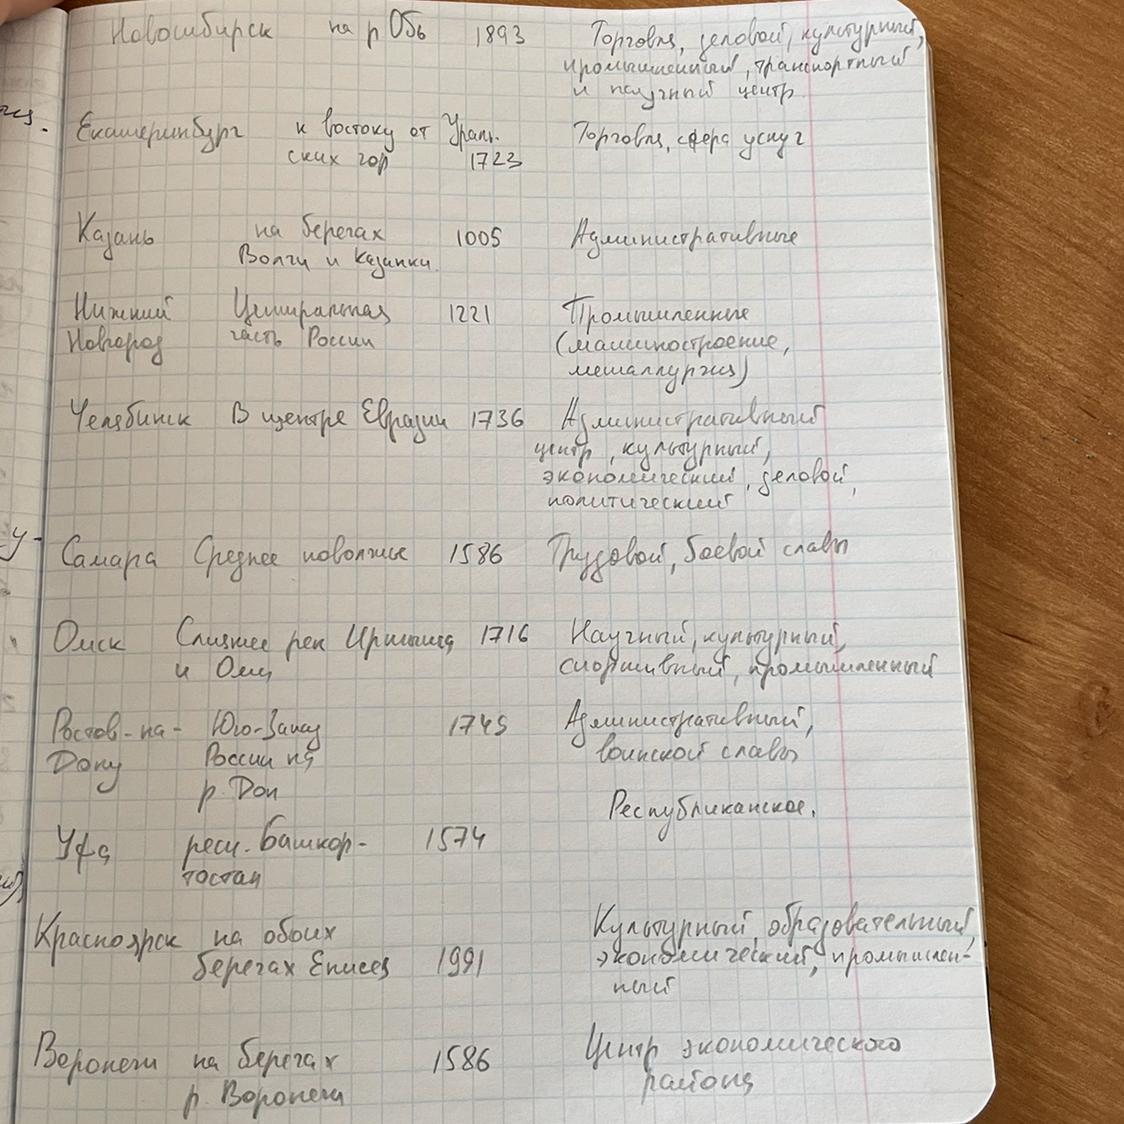 Новосибирск на р Обь 1893 Торговля, деловой, культурный,
промышленный, транспортный
и научный центр
Екатеринбург к востоку от Ураль-
ских гор 1723 Торговля, сфера услуг
Казань на берегах 1005 Административные
Волги и Казанки.
Нижний Центральная 1221 Промышленные
Новгород часть России (машиностроение,
металлургия)
Челябинск В центре Евразии 1736 Административный
центр, культурный,
экономический, деловой,
политический
Самара Среднее поволжье 1586 Трудовой, боевой славы
Омск Слияние рек Иртыша 1716 Научный, культурный,
и Оми спортивный, промышленный
Ростов-на- Юго-Запад 1749 Административный,
Дону России на воинской славы
р. Дон
Республиканское.
Уфа респ. Башкор- 1574
тостан
Красноярск на обоих Культурный, образовательный
берегах Енисея 1991 экономический, промышлен-
ный
Воронеж на берегах 1586 Центр экономического
р. Воронеж района